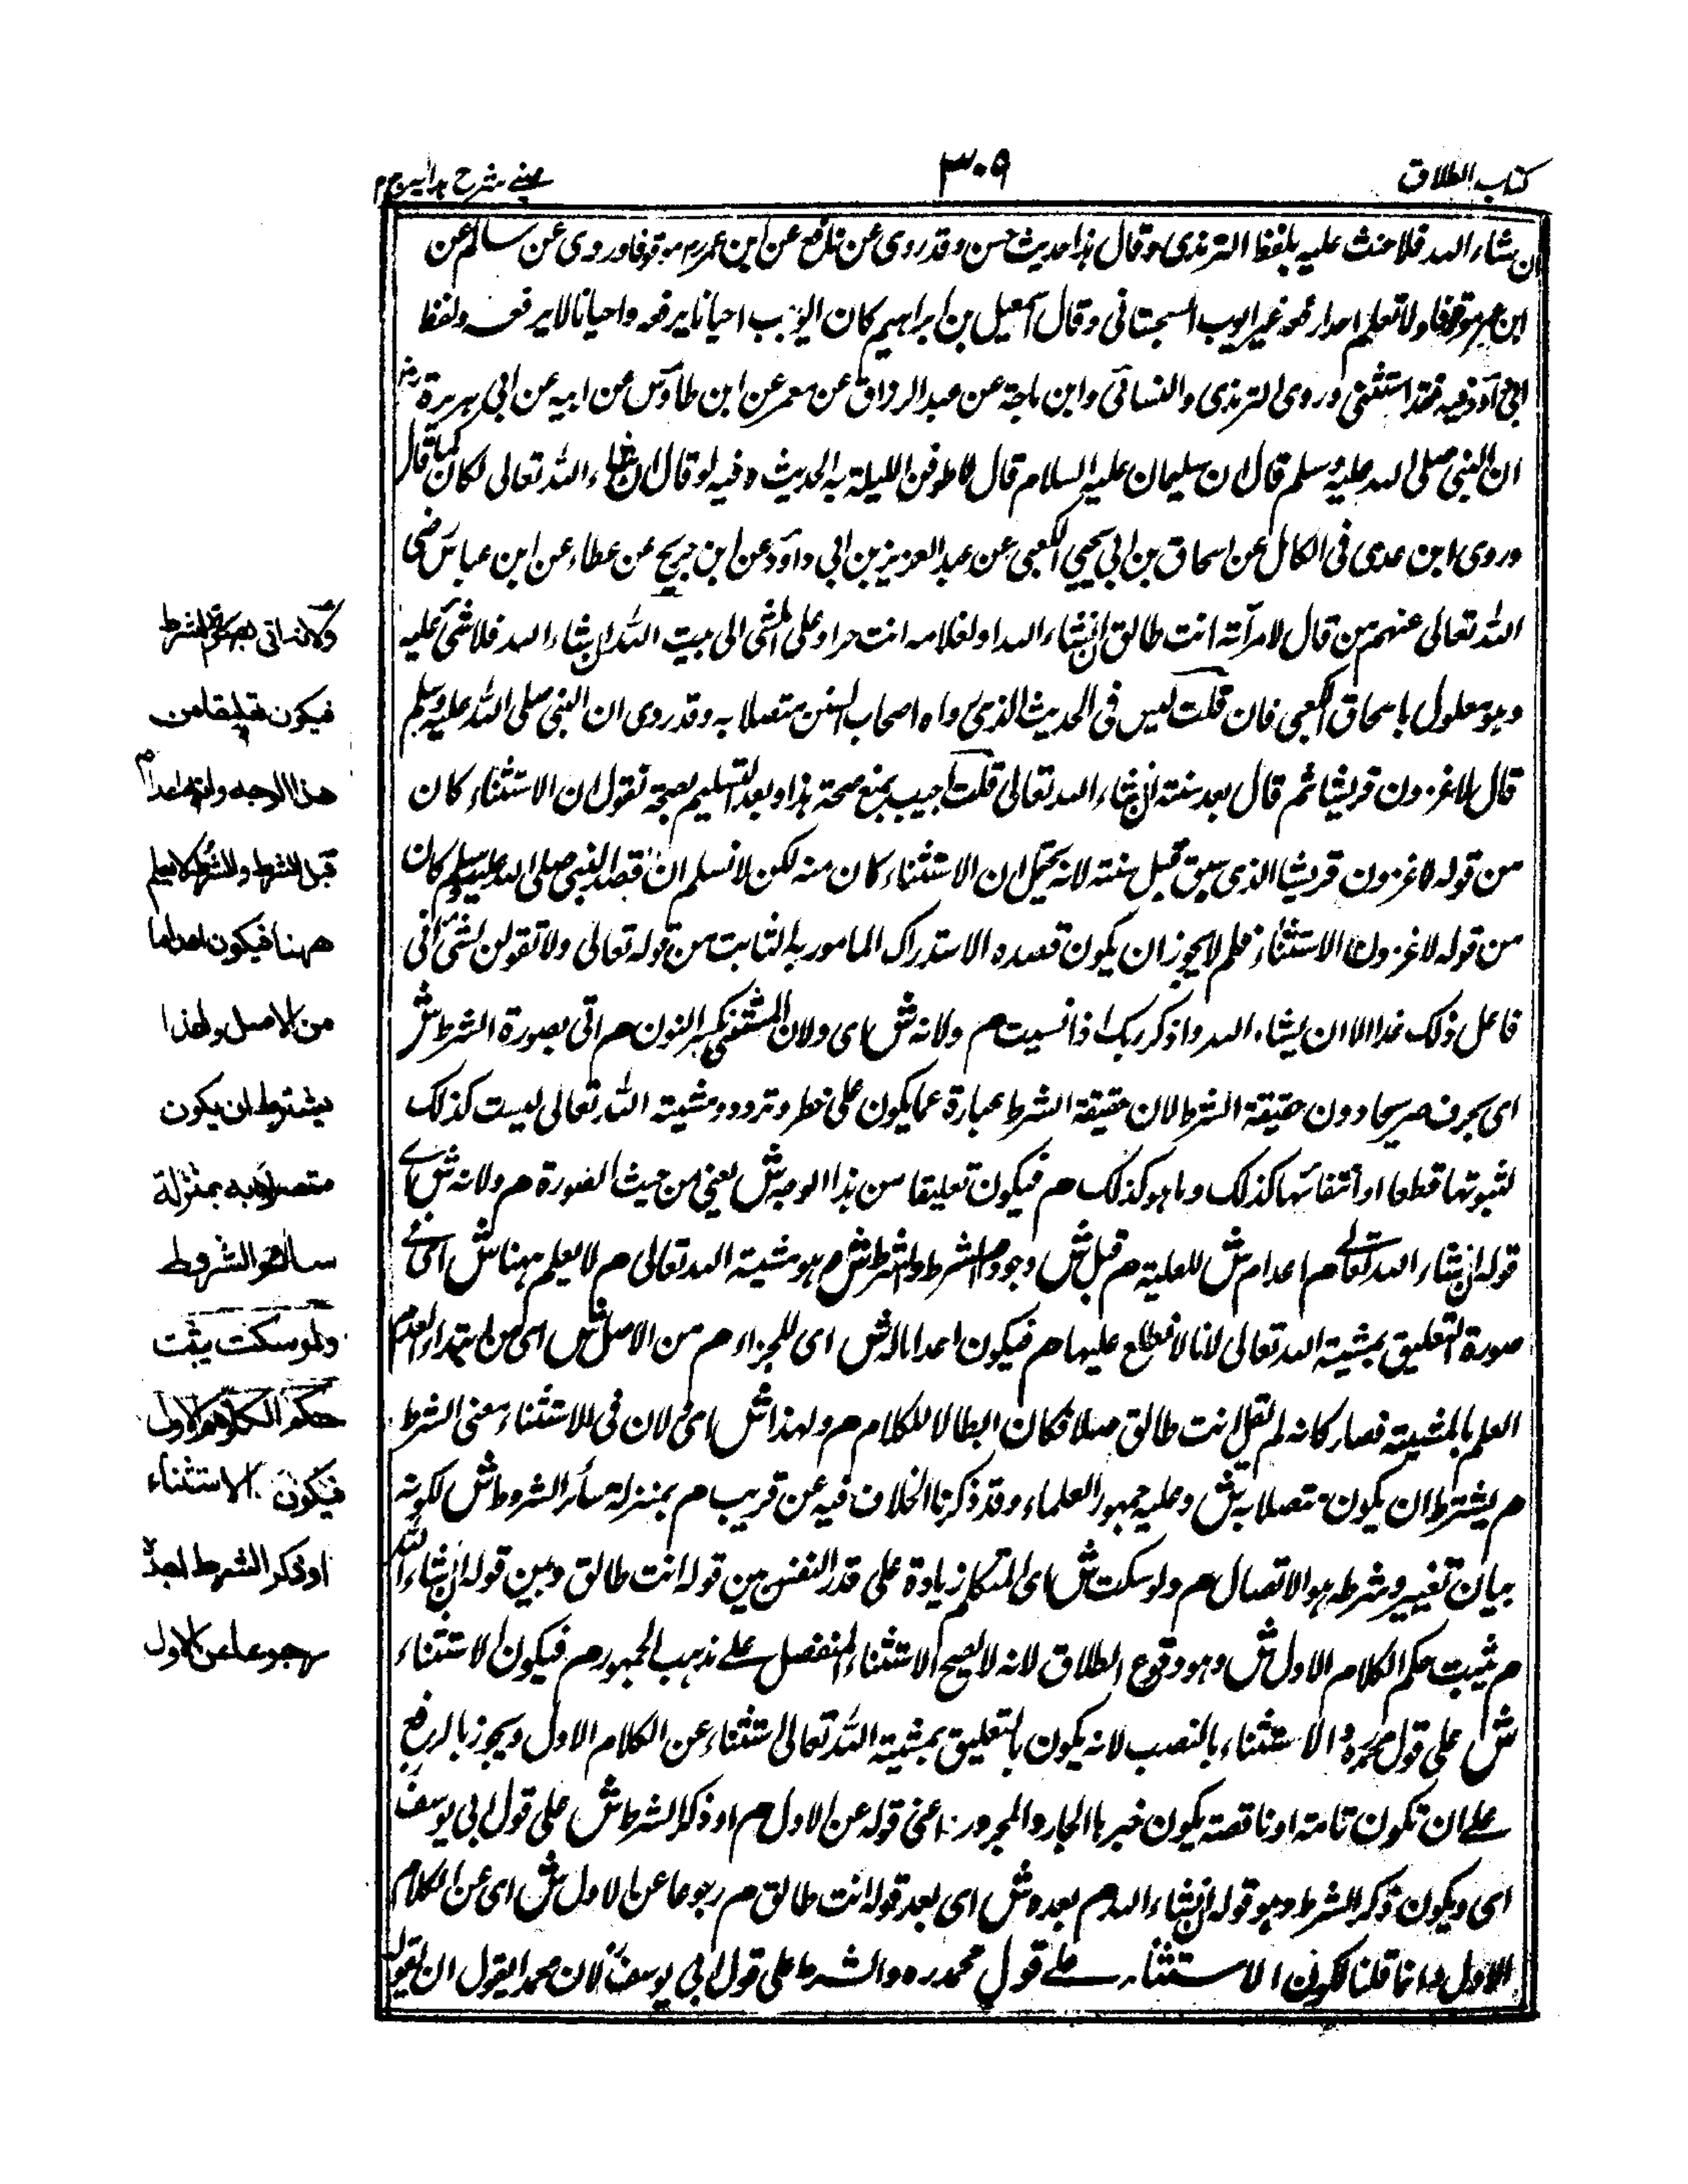 كتاب الطلاق
٣٠٩
عيني شرح هدايه ج ٢
ان شاء الله فلا حنث عليه بلفظ الترمذي وقال هذا حديث حسن وقد روي عن نافع عن ابن عمر رض موقوفا وروي عن سالم عن
ابن عمر موقوفا ولا تعلم احدا رفعه غير ايوب السجستاني وقال اسمعيل بن ابراهيم كان ايوب احيانا يرفعه واحيانا لا يرفعه ولفظ
ابي داؤد فيه فقد استثنى وروى الترمذي والنسائي وابن ماجة عن عبد الرزاق عن معمر عن ابن طاوس عن ابيه عن ابي هريرة رض
ان النبي صلى الله عليه وسلم قال ان سليمان عليه السلام قال لاطوفن الليلة الحديث وفيه لو قال ان شاء الله تعالى لكان كما قال
وروى ابن عدي في الكامل عن اسحاق بن ابي يحيى الكعبي عن عبد العزيز بن ابي داود عن ابن جريج عن عطاء عن ابن عباس رضي
الله تعالى عنهم من قال لامرأته انت طالق ان شاء الله او لغلامه انت حر او على المشي الى بيت الله ان شاء الله فلا شئ عليه
وهو معلول باسحاق الكعبي فان قلت ليس في الحديث الذي رواه اصحاب السنن متصلا به وقد روي ان النبي صلى الله عليه وسلم
قال لاغزون قريشا ثم قال بعد سنته ان شاء الله تعالى قلت اجيب بمنع صحة هذا وبعد التسليم بصحته نقول ان الاستثناء كان
من قوله لاغزون قريشا الذي سبق قبل سنته لانه يحتمل ان الاستثناء كان منه لكن لا نسلم ان قصد النبي صلى الله عليه وسلم كان
من قوله لاغزون الاستثناء فلم لا يجوز ان يكون قصده الاستدراك المامور به الثابت من قوله تعالى ولا تقولن لشئ اني
فاعل ذلك غدا الا ان يشاء الله واذكر ربك اذا نسيت م ولانه ش اى ولان المستثنى بكسر النون م اتى بصورة الشرط ش
اى بحرف صريحا دون حقيقة الشرط لان حقيقة الشرط عبارة عما يكون على خطر وتردد ومشيته الله تعالى ليست كذلك
لثبوتها قطعا او انتفائها كذلك وما هو كذلك م فيكون تعليقا من هذا الوجه ش يعني من حيث الصورة م ولانه ش اى
قوله ان شاء الله تعالى م اعدام ش للعلية م قبل ش وجود م الشرط والشرط ش م هو مشيته الله تعالى م لا يعلم ههنا ش اى في
صورة التعليق بمشيته الله تعالى لانا لا نطلع عليها م فيكون اعداما له ش اى للجزاء م من الاصل ش اى من ابتداء لعدم
العلم بالمشيته فصار كانه لم يقل انت طالق اصلا فكان ابطالا للكلام م ولهذا ش اى لان في الاستثناء معنى الشرط
م يشترط ان يكون متصلا به ش وعليه جمهور العلماء وقد ذكرنا الخلاف فيه عن قريب م بمنزلة سائر الشروط ش لكونه
بيان تغيير وشرطه هو الاتصال م ولو سكت ش اى المتكلم زيادة على قدر النفس بين قوله انت طالق وبين قوله ان شاء الله
م يثبت حكم الكلام الاول ش وهو وقوع الطلاق لانه لا يصح الاستثناء المنفصل على مذهب الجمهور م فيكون الاستثناء
ش على قول محمد ره والاستثناء بالنصب لانه يكون بالتعليق بمشيته الله تعالى استثناء عن الكلام الاول ويجوز بالرفع
على ان تكون تامته او ناقصته يكون خبرها الجار والمجرور اعني قوله عن الاول م او ذكر الشرط ش على قول ابي يوسف
اى ويكون ذكر الشرط وهو قوله ان شاء الله م بعده ش اى بعد قوله انت طالق م رجوعا عن الاول ش اى عن الكلام
الاول وانما قلنا لكون الاستثناء على قول محمد ره والشرط على قول ابي يوسف لان محمدا يقول ان يقول
ولانه اتى بصورة الشرط
فيكون تعليقا من
هذا الوجه ولانه اعدام
قبل الشرط والشرط لا يعلم
ههنا فيكون اعداما
من الاصل ولهذا
يشترط ان يكون
متصلا به بمنزلة
سائر الشروط
ولو سكت يثبت
حكم الكلام الاول
فيكون الاستثناء
او ذكر الشرط بعده
رجوعا عن الاول